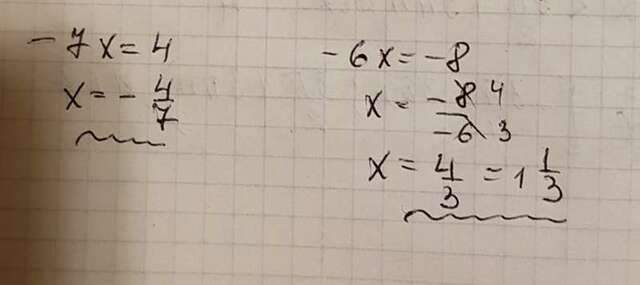 -7x=4
x=-4/7
-6x=-8
x=-8/-6 4 3
x=4/3=1 1/3